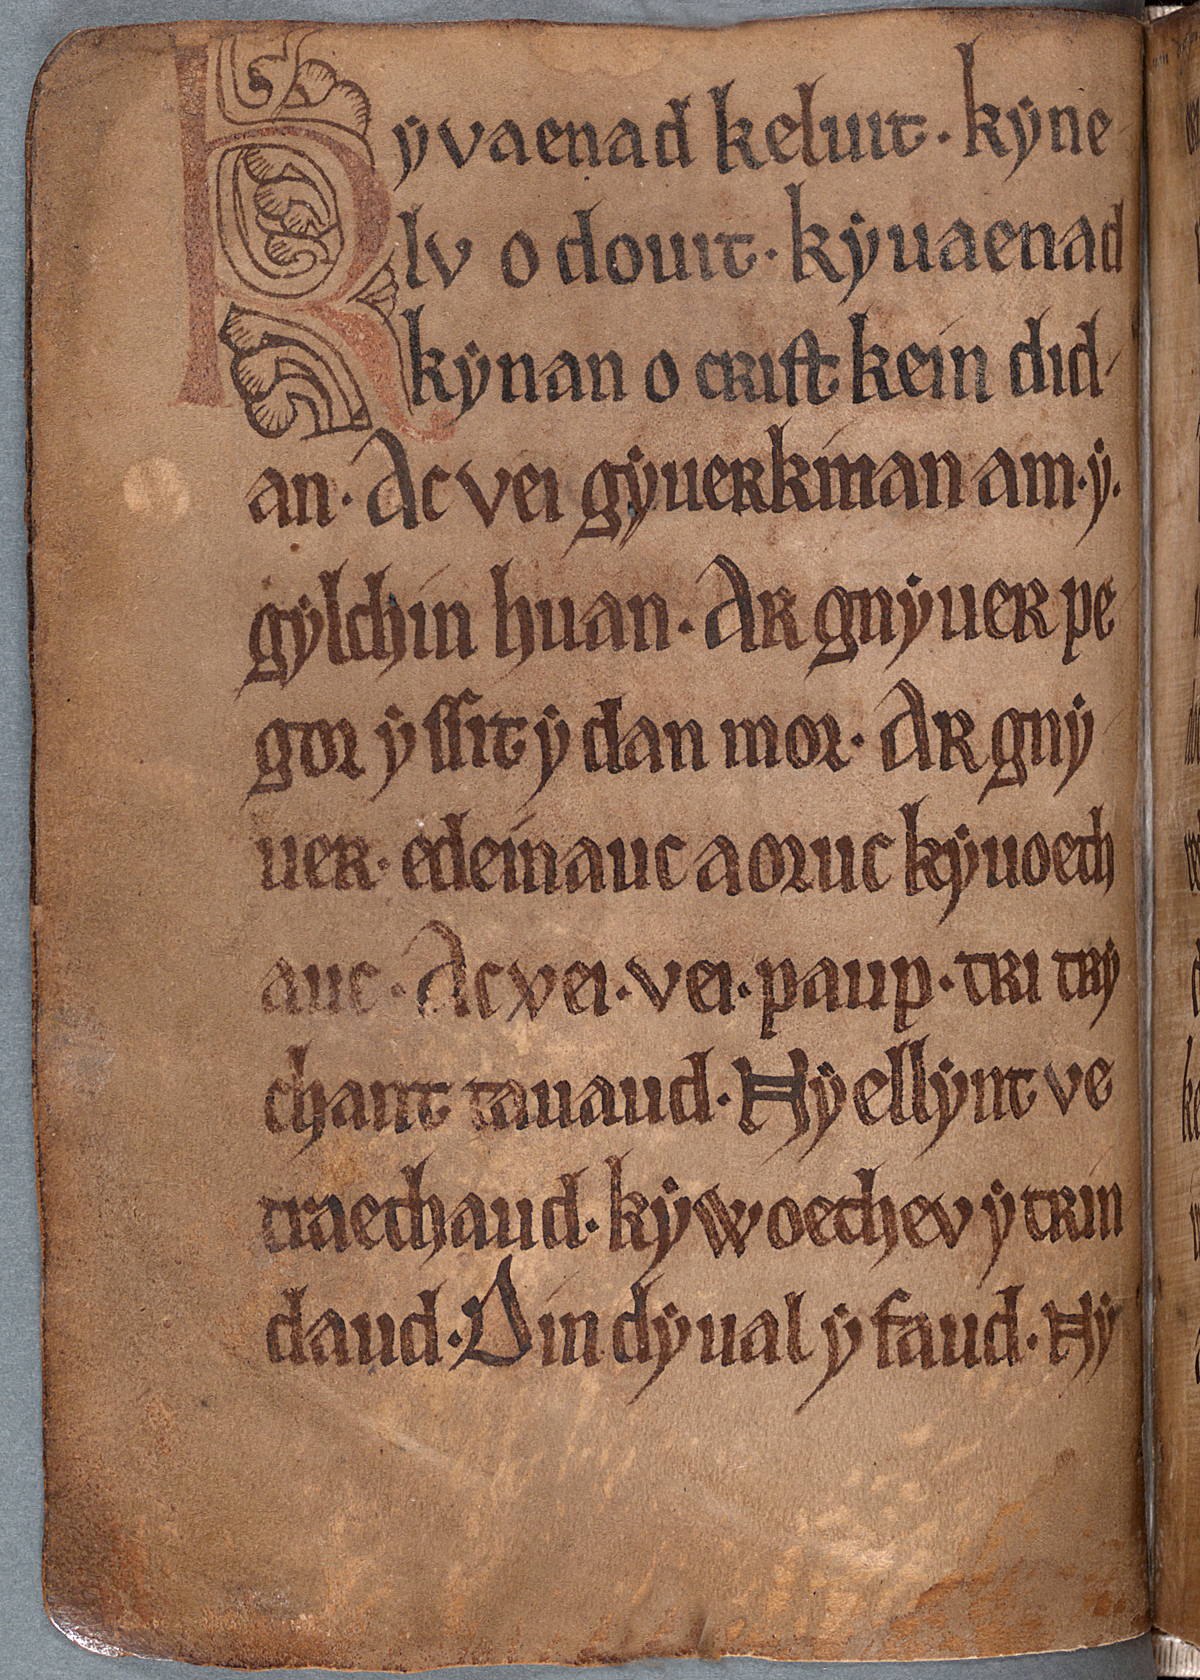 Kẏvaenad keluit · kẏne
lv o douit · kẏuaenad
kẏnan o crist kein did
an · Ac vei gẏuerkinan am · ẏ ·
gẏlchin huan · Ar gnẏuer pe
gor ẏ ssit ẏ dan mor · Ar gnẏ
uer · edeinauc aoruc kẏuoeth
auc · Ac vei · vei · paup · tri trẏ
chant tauaud · Nẏ ellẏnt ve
traethaud · kẏwoethev ẏ trin
daud · Din dẏual ẏ faud · Nẏ